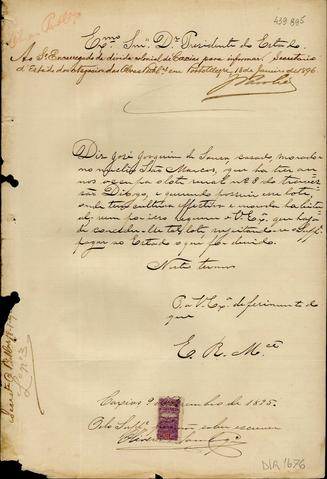 439895
Obras Publ.
Exmo Snr. Dr. Presidente do Estado
Ao Sr. Encarregado da divida colonial de Caxias para informar. Secretaria
d'Estado dos Negocios das Obras Publicas em Porto Alegre, 18 de Janeiro de 1896.
Diz José Joaquim de Souza, casado, morador
no nucleo São Marcos, que ha tres an
nos occupa o lote rural nº 8 do travessão
Diogo, e querendo possuir esse lote
onde tem cultura effectiva e morada habitu
al, vem por isso requerer a V. Exª que haja
de conceder-lhe tal lote, sujeitando-se o Suppe
pagar ao Estado o que for devido.
Neste termos
P. a V. Exª deferimento do
que
E. R. Mcê
Caxias 9 de
embro de 1895.
Pelo Suppe
não saber escrever
Nº 3
DIR 1676